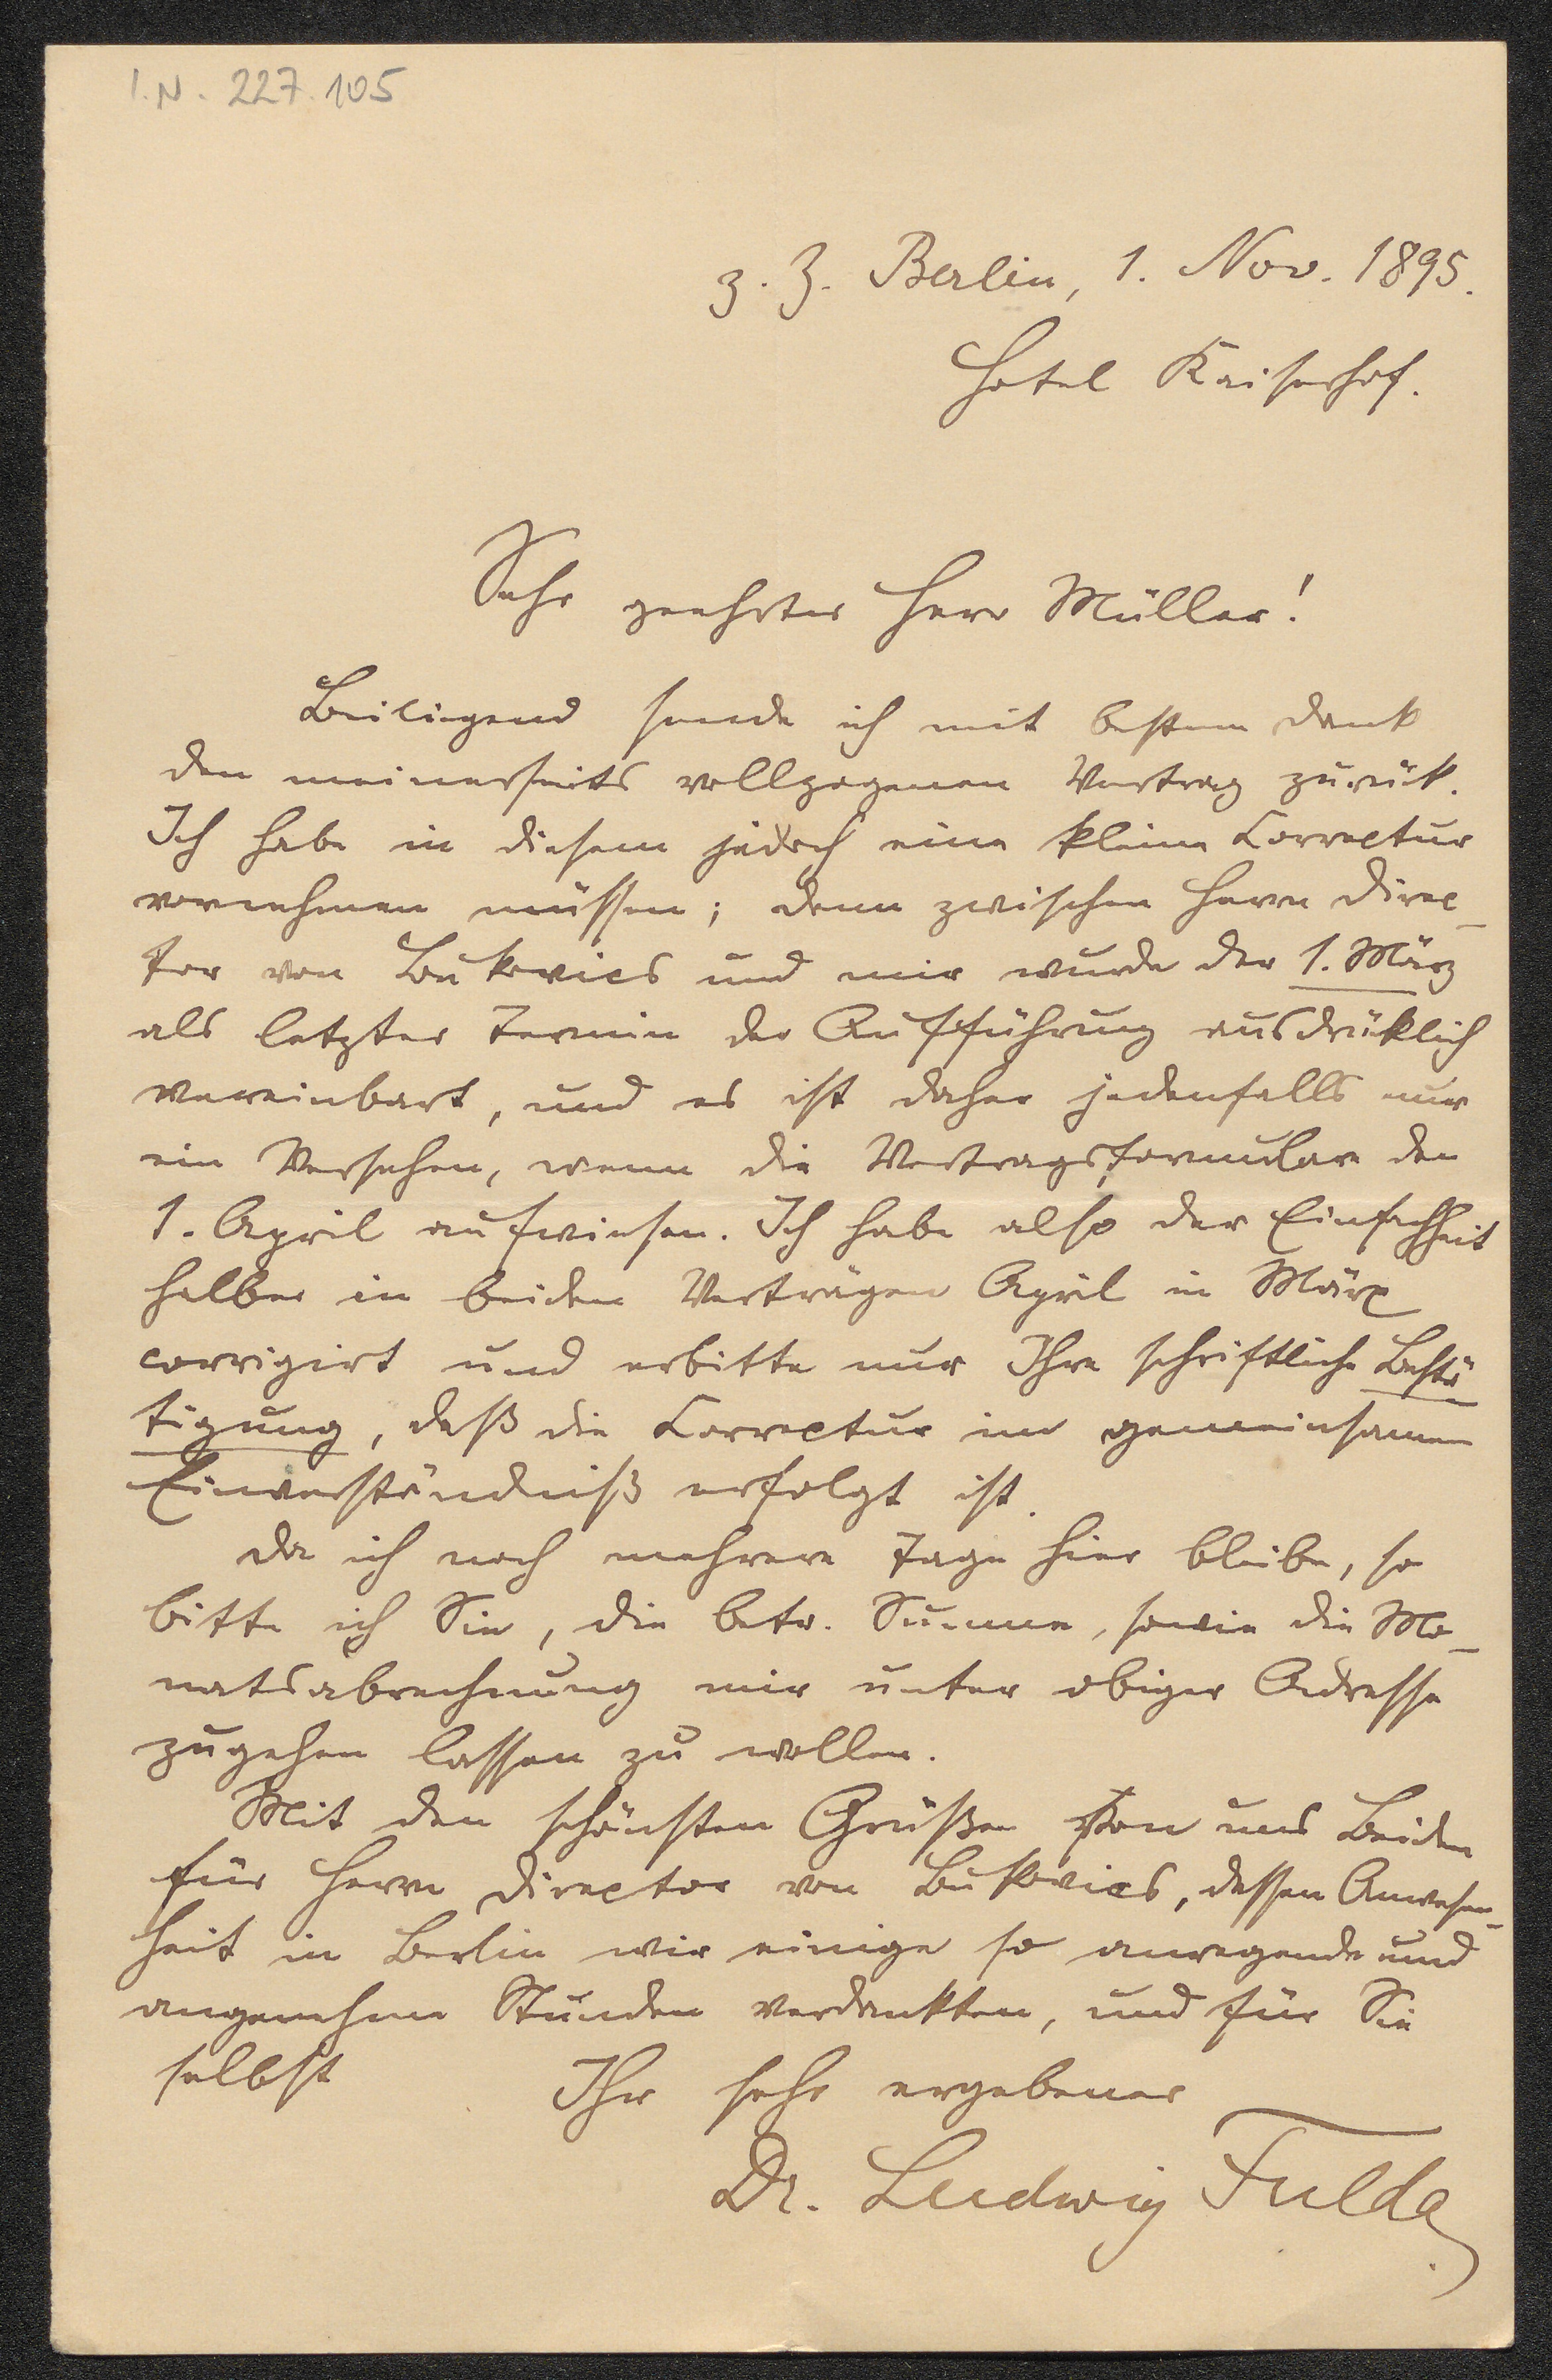 I.N. 227.105
z. Z. Berlin, 1. Nov. 1895.
Hotel Kaiserhof.
Sehr geehrter Herr Müller!
Beiliegend sende ich mit bestem Dank
den meinerseits vollzogenen Vertrag zurück.
Ich habe in diesem jedoch eine kleine Correctur
vornehmen müssen; denn zwischen Herrn Direc-
tor von Bukovics und mir wurde der 1. März
als letzter Termin der Aufführung ausdrüklich
vereinbart, und es ist daher jedenfalls nur
ein Versehen, wenn die Vertragsformulare den
1. April aufwiesen. Ich habe also der Einfachheit
halber in beiden Verträgen April in März
corrigirt und erbitte nur Ihre schriftliche Bestä-
tigung, daß die Correctur im gemeinsamen
Einverständniß erfolgt ist.
Da ich noch mehrere Tage hier bleibe, so
bitte ich Sie, die betr. Summe, sowie die Mo-
natsabrechnung mir unter obiger Adresse
zugehen lassen zu wollen.
Mit den schönsten Grüßen von uns Beiden
für Herrn Director von Bukovics, dessen Anwesen-
heit in Berlin wir einige so anregende und
angenehme Stunden verdankten, und für Sie
selbst Ihr sehr ergebener
Dr. Ludwig Fulda